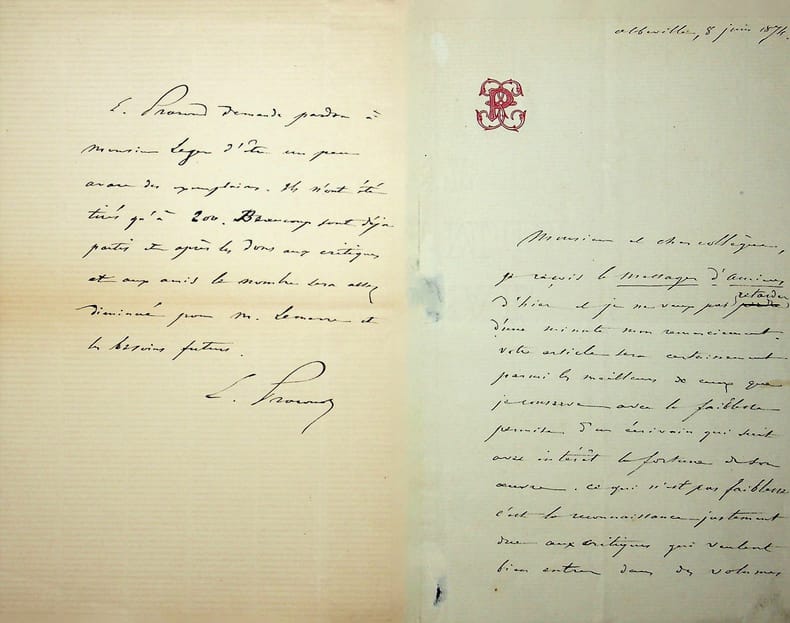 E. Prarond demande pardon à
Monsieur Leger d'être un peu
avare des exemplaires. Ils n'ont été
tirés qu'à 200. Beaucoup sont déjà
partis et après les dons aux critiques
et aux amis le nombre sera assez
diminué pour M. Lemerre et
les besoins futurs.
E. Prarond
Abbeville, 8 juin 1874.
Monsieur et cher collègue,
je reçois le Messager d'Amiens
d'hier et je ne veux pas retarder
d'une minute mon remerciement.
votre article sera certainement
parmi les meilleurs de ceux que
je conserve avec la faiblesse
permise d'un écrivain qui suit
avec intérêt la fortune de son
œuvre. Ce qui n'est pas faiblesse
c'est la reconnaissance justement
due aux critiques qui veulent
bien entrer dans des volumes